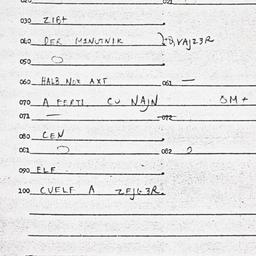 030 ZIB+
040 DER M1NUTNIK
050
060 HALB NOX AXT 061 —
070 A FERTL CU NAJN OM+
071 — 072
080 CEN
081 082
090 ELF
100 CVELF A ZEJG3R